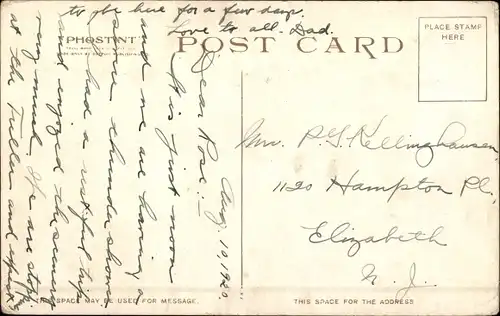 Aug. 10, 1920.
Dear Rose:-
It is just noon
and we are having a
severe thunder shower
had a restful trip
and enjoyed the scenery
very much. We are stop.
at the Fuller and expect
to be here for a few days.
Love to all. Dad.
PHOSTINT
POST CARD
PLACE STAMP
HERE
Mrs. P. G. Kellinghausen
1120 Hampton Pl.
Elizabeth
N. J.
THIS SPACE MAY BE USED FOR MESSAGE.
THIS SPACE FOR THE ADDRESS